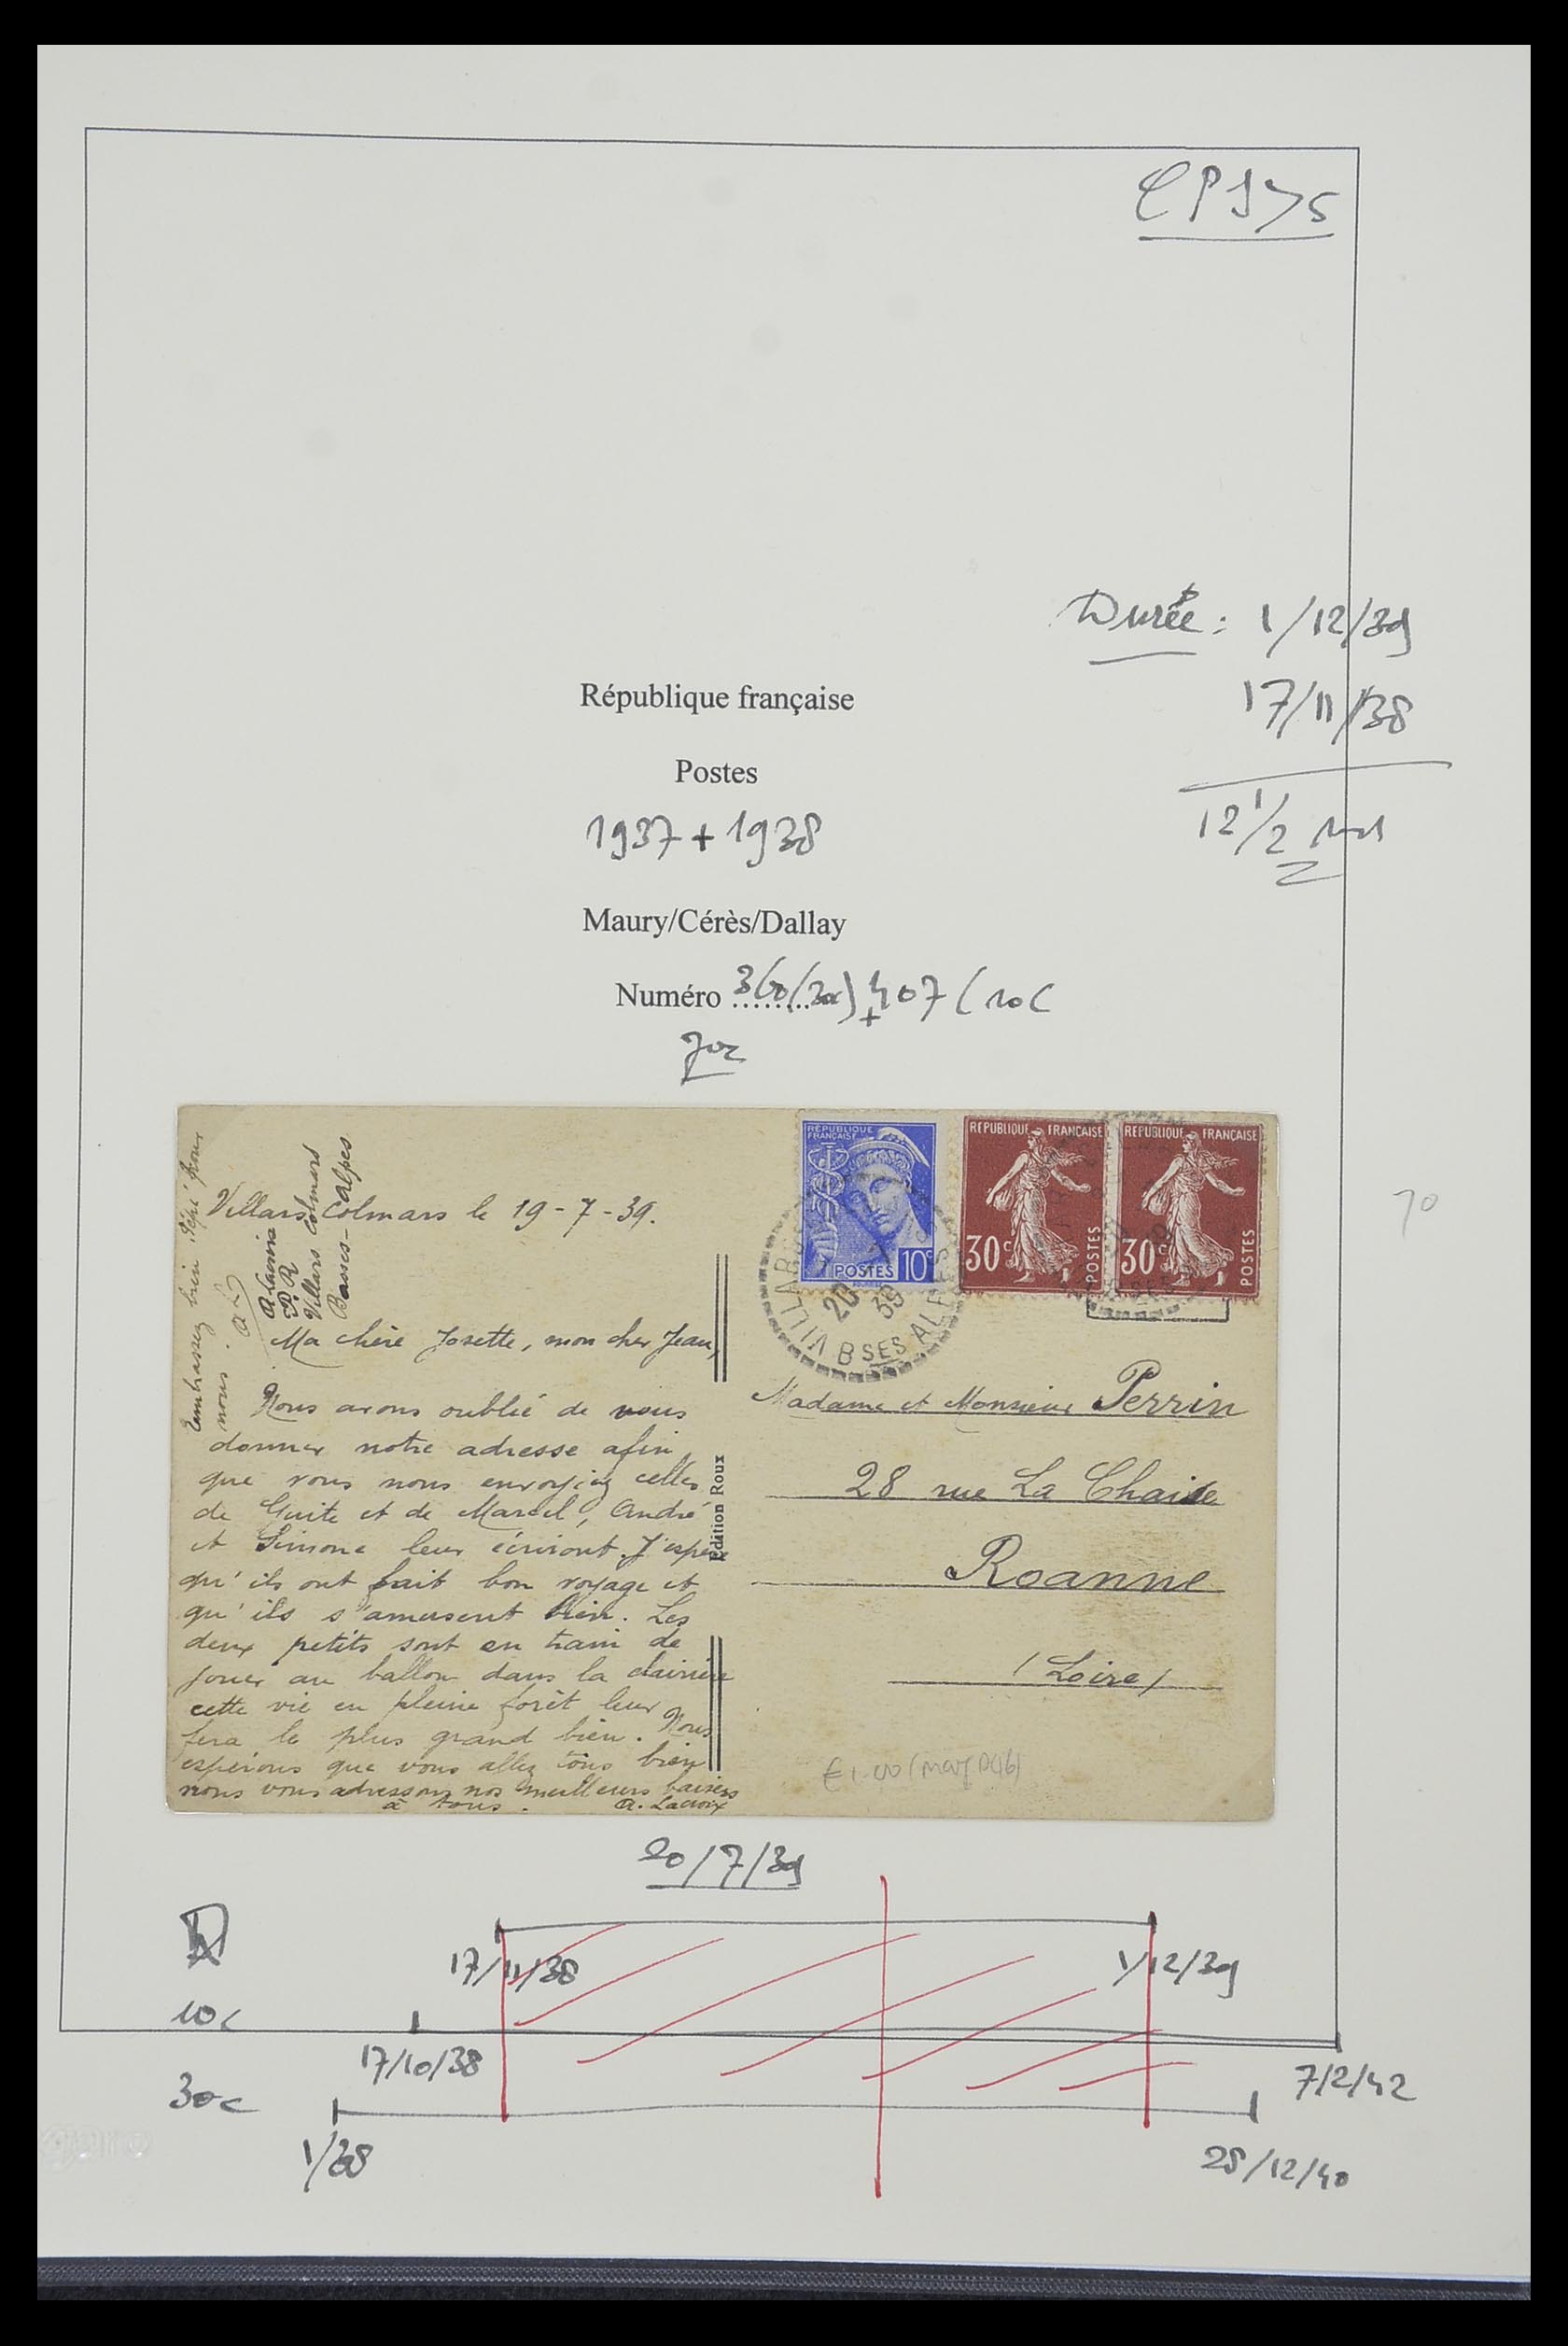 CP 5>5
Durée : 1/12/39
17/11/38
12 1/2
République française
Postes
1937 + 1938
Maury/Cérès/Dallay
Numéro 360 (30c) + 407 (10c
70c
70
Embrassez bien Pépé pour
nous. A L
A Lacroix
P. R
Villars Colmars
Basses-Alpes
Villars Colmars le 19-7-39.
Ma chère Josette, mon cher Jean,
Nous avons oublié de vous
donner notre adresse afin
que vous nous envoyiez celles
de Guite et de Marcel, André
et Simone leur écriront. J'espère
qu'ils ont fait bon voyage et
qu'ils s'amusent bien. Les
deux petits sont en train de
jouer au ballon dans la clairière
cette vie en pleine forêt leur
fera le plus grand bien. Nous
espérons que vous allez tous bien
nous vous adressons nos meilleurs baisers
à tous. A. Lacroix
Edition Roux
RÉPUBLIQUE FRANÇAISE
POSTES 10c
REPUBLIQUE FRANÇAISE
30c POSTES
REPUBLIQUE FRANÇAISE
30c POSTES
VILLARS
20 7 39
BSES ALPES
Madame et Monsieur Perrin
28 rue La Chaise
Roanne
(Loire)
20/7/39
17/11/38 1/12/39
10c
17/10/38 7/2/42
30c
1/38 25/12/40